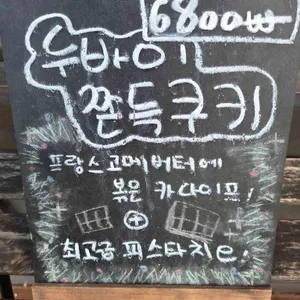 6800₩
두바이
쫀득쿠키
프랑스고메버터에
볶은 카다이프!
+
최고급 피스타치e!